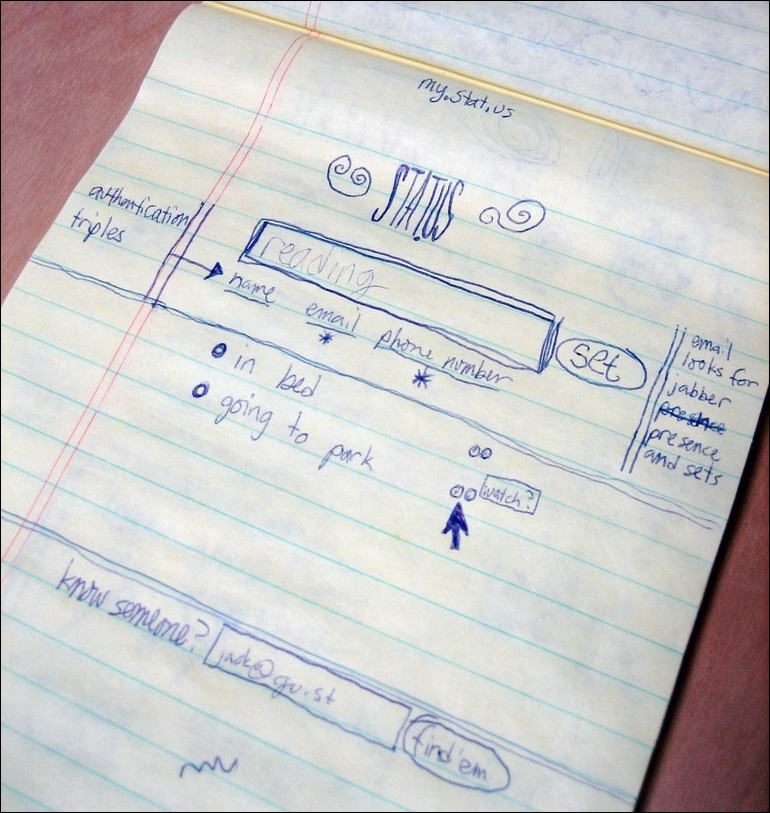 my.stat.us
STATUS
authentication
triples
reading
name email phone number
* *
set
email
looks for
jabber
presence
presence
and sets
in bed
going to park
watch?
know someone? jack@gu.st
find'em